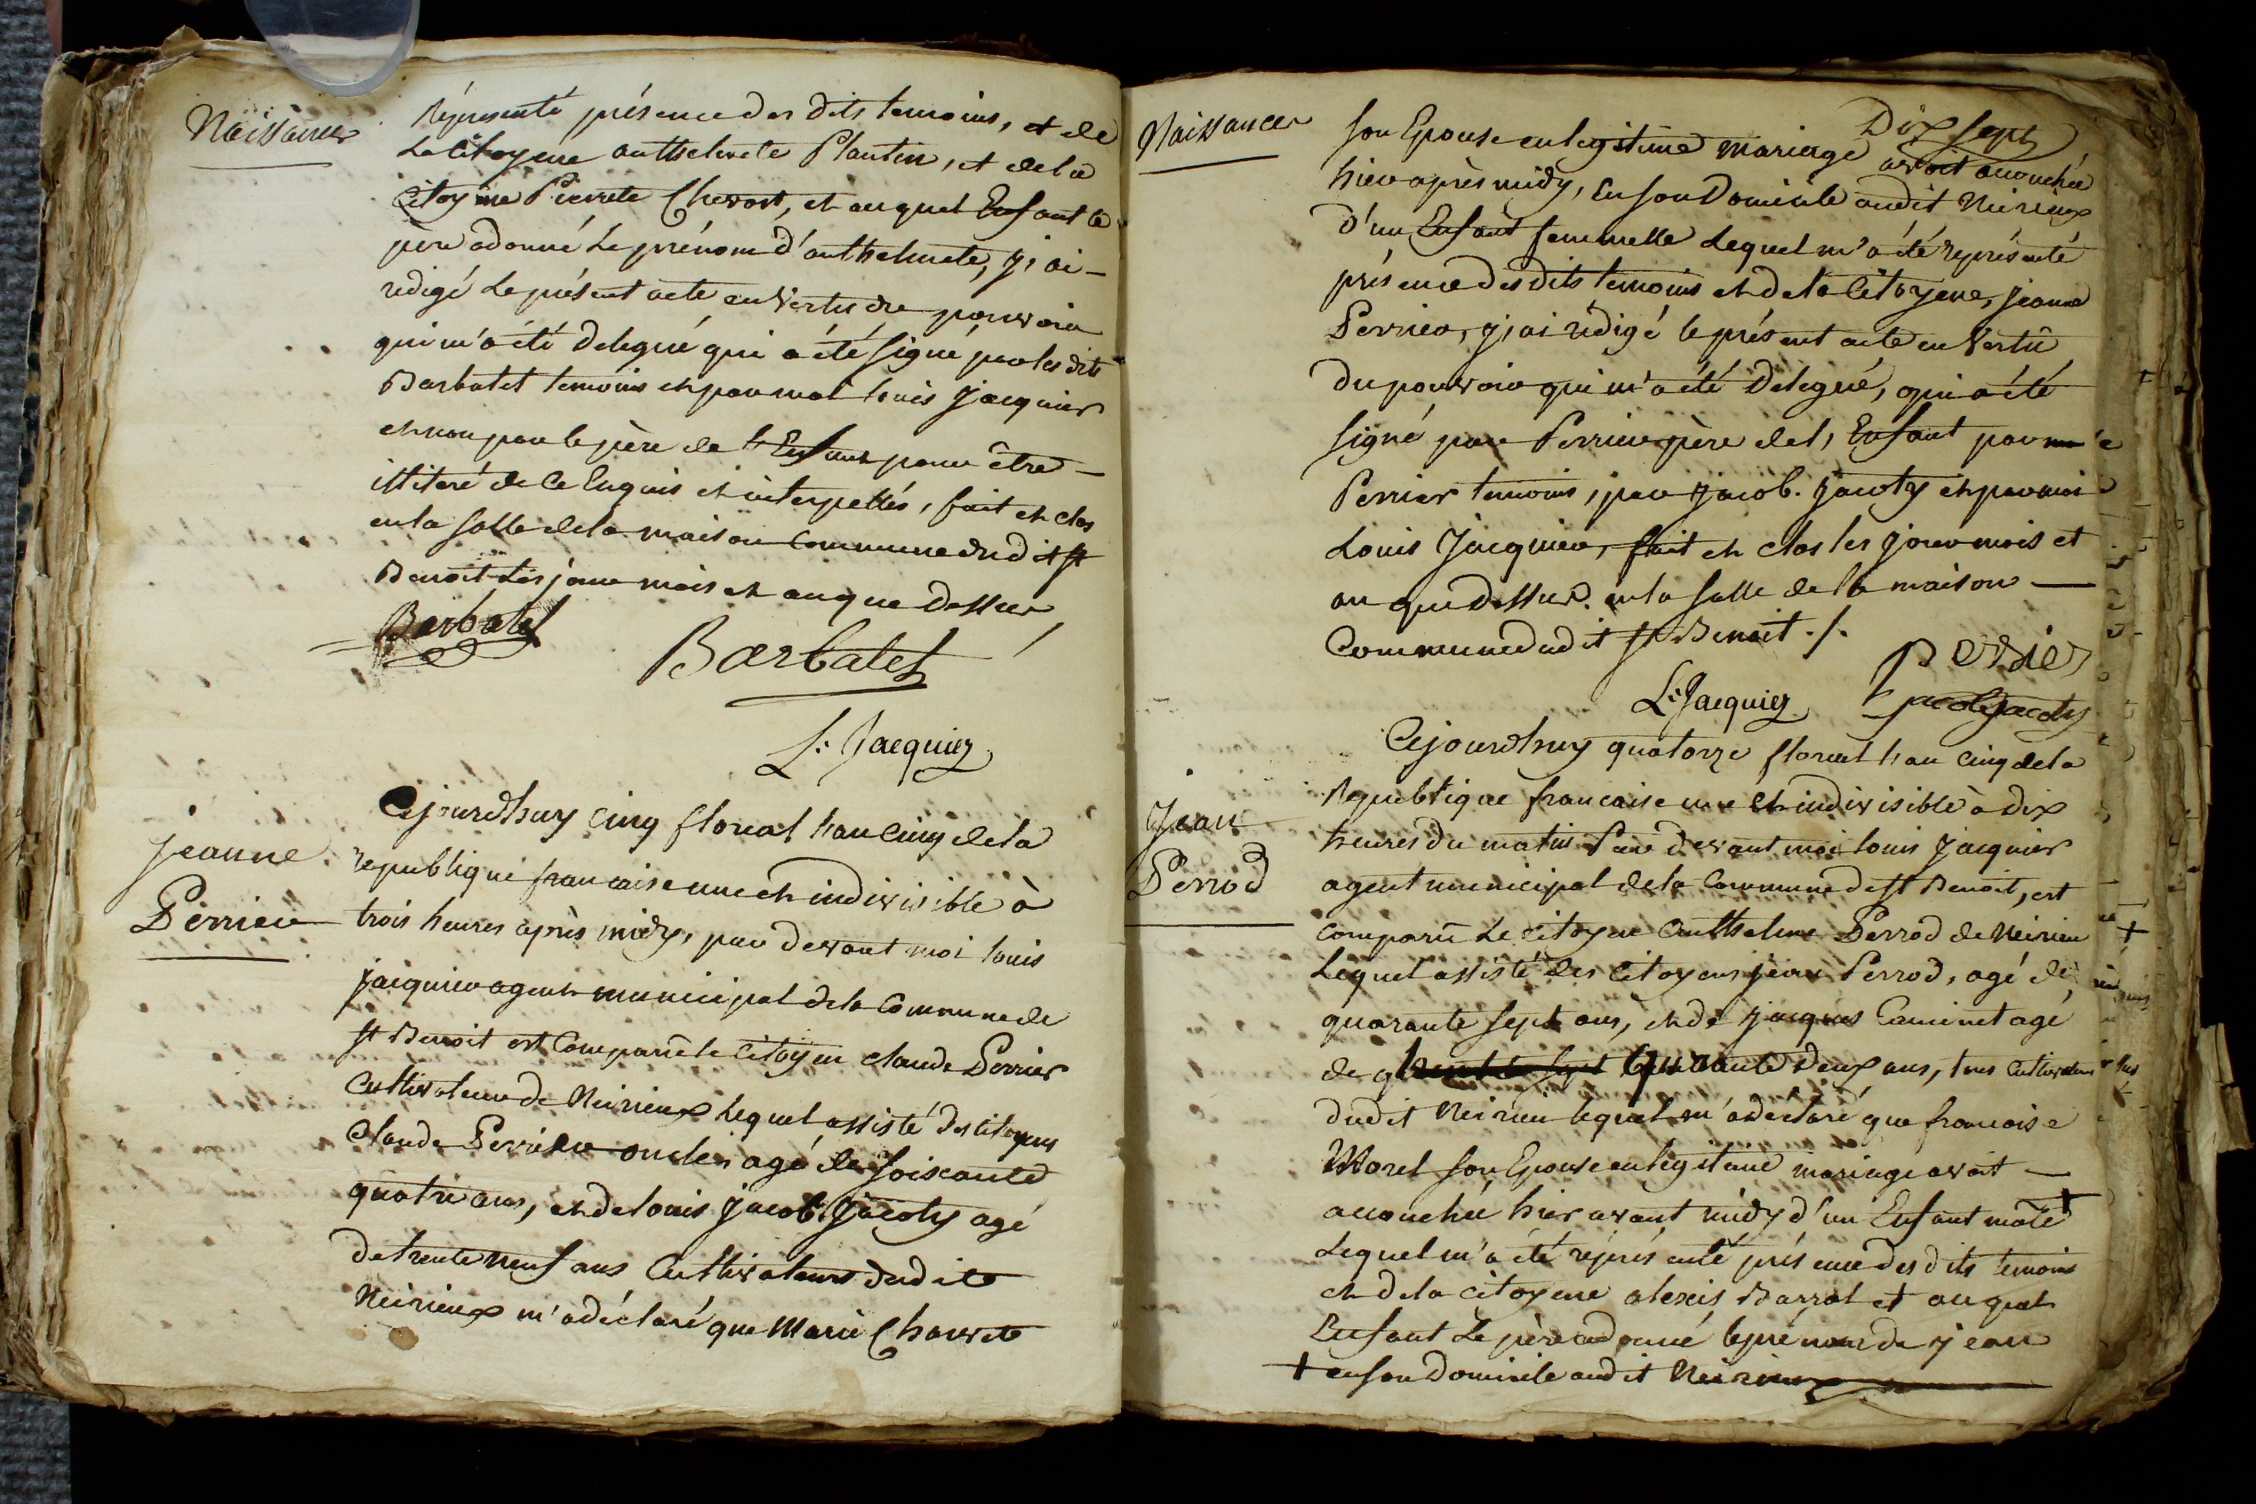 Naissances
Réprésenté présence des dits temoins, et de
La Citoyene anthelmete Plantin, et de la
Citoyene Pierrete Chevort, et auquel Enfant le
père a donné Le prénom d'anthelmete, j'ai
redigé Le présent acte en Vertu du pouvoir
qui m'a été delegué qui a été signé par les dits
Barbatet temoins et par moi Louis Jacquier
et non par le père de l'Enfant pour être
illiteré de ce Enquis et interpellés, fait et clos
en la salle de la maison Commune dudit St
Benoit Les jour mois et an que dessus
Barbatet
Barbatet
L.s Jacquier
jeanne
Perrier
Cejourdhuy cinq floreal l'an Cinq de la
republique francaise une et indivisible à
trois heures après midy, par devant moi louis
jacquier agent municipal de la Commune de
St Benoit est Comparû le Citoyen claude Perrier
Cultivateur de Neirieux Lequel assisté des Citoyens
Claude Perrier oncle agé de soixante
quatre ans, et de louis jacob. jacoty agé
de trente neuf ans Cultivateurs dudit
Neirieux m'a déclaré que Marie Charvete
Dix sept
Naissances
son Epouse en legitime mariage avoit accouchée
hier après midy, en son Domicile audit Neirieux
d'un Enfant femmelle Lequel m'a été représenté
présence des dits temoins et de la Citoyene, jeanne
Perrier, j'ai redigé le présent acte en Vertû
du pouvoir qui m'a été delegué, qui a été
signé par Perrier père de l'Enfant par
Perrier temoins, par jacob. jacoty et par moi
Louis Jacquier, fait et clos les jour mois et
an que dessus. en la salle de la maison
Commune dudit St Benoit ./.
perrier
L.s Jacquier
jacob jacoty
Jean
Perrod
Cejourdhuy quatorze floreal l'an Cinq de la
Republique francaise une et indivisible à dix
heures du matin Par devant moi louis jacquier
agent municipal de la Commune de St Benoit, est
Comparû Le citoyen anthelme Perrod de Neirieu
Lequel assisté des citoyens jean Perrod, agé de
quarante sept ans, et de jacques Caminet agé
de quarante deux ans, tous cultivateurs
dudit Neirieu lequel m'a declaré que francoise
Morel son Epouse en legitime mariage avoit
accouchée hier avant midy d'un Enfant mâle +
Lequel m'a été représenté présence des dits temoins
et de la citoyene alexis Barral et auquel
Enfant Le père a donné le prénom de jean
+ en son Domicile audit Neirieux